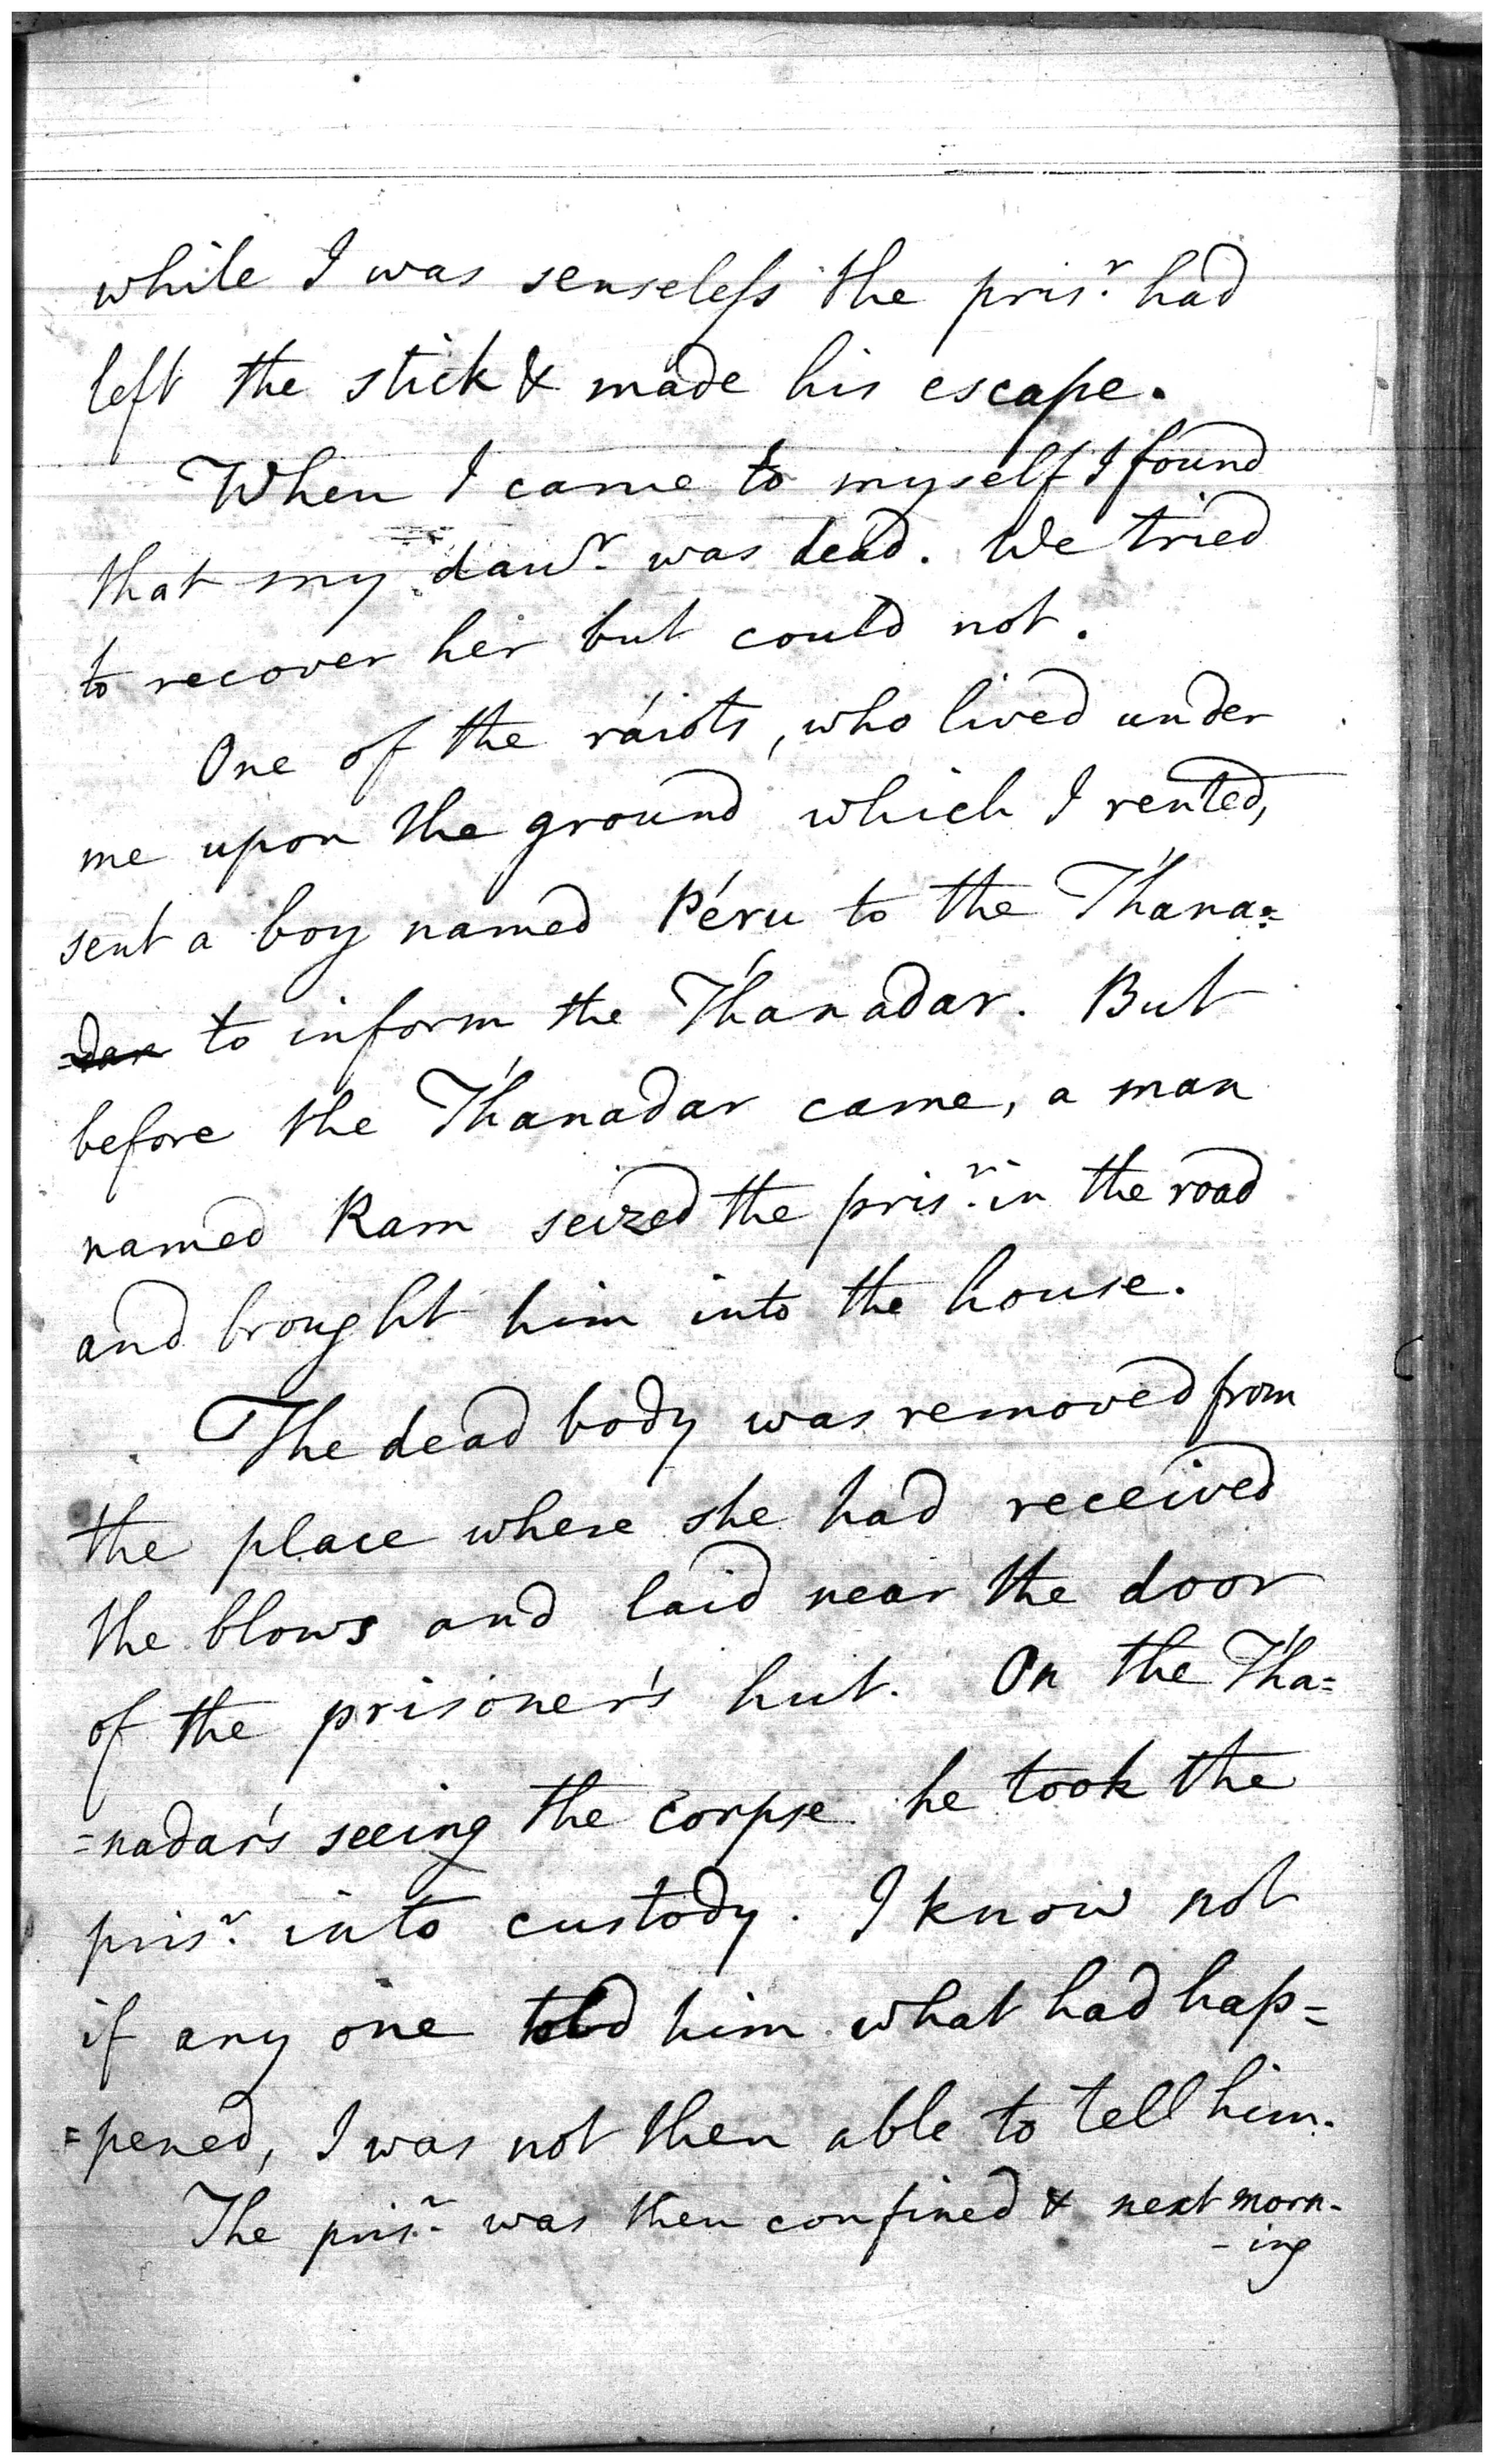 while I was senseless the pris.r had
left the stick & made his escape.
When I came to myself I found
that my dau.r was dead. We tried
to recover her but could not.
One of the ráiots, who lived under
me upon the ground which I rented,
sent a boy named Péru to the Thána=
=dar to inform the Thánadar. But
before the Thánadar came, a man
named Ram seized the pris.r in the road
and brought him into the house.
The dead body was removed from
the place where she had received
the blows and laid near the door
of the prisoner's hut. On the Thá=
=nadar's seeing the corpse he took the
pris.r into custody. I know not
if any one told him what had hap=
=pened, I was not then able to tell him.
The pris.r was then confined & next morn-
-ing